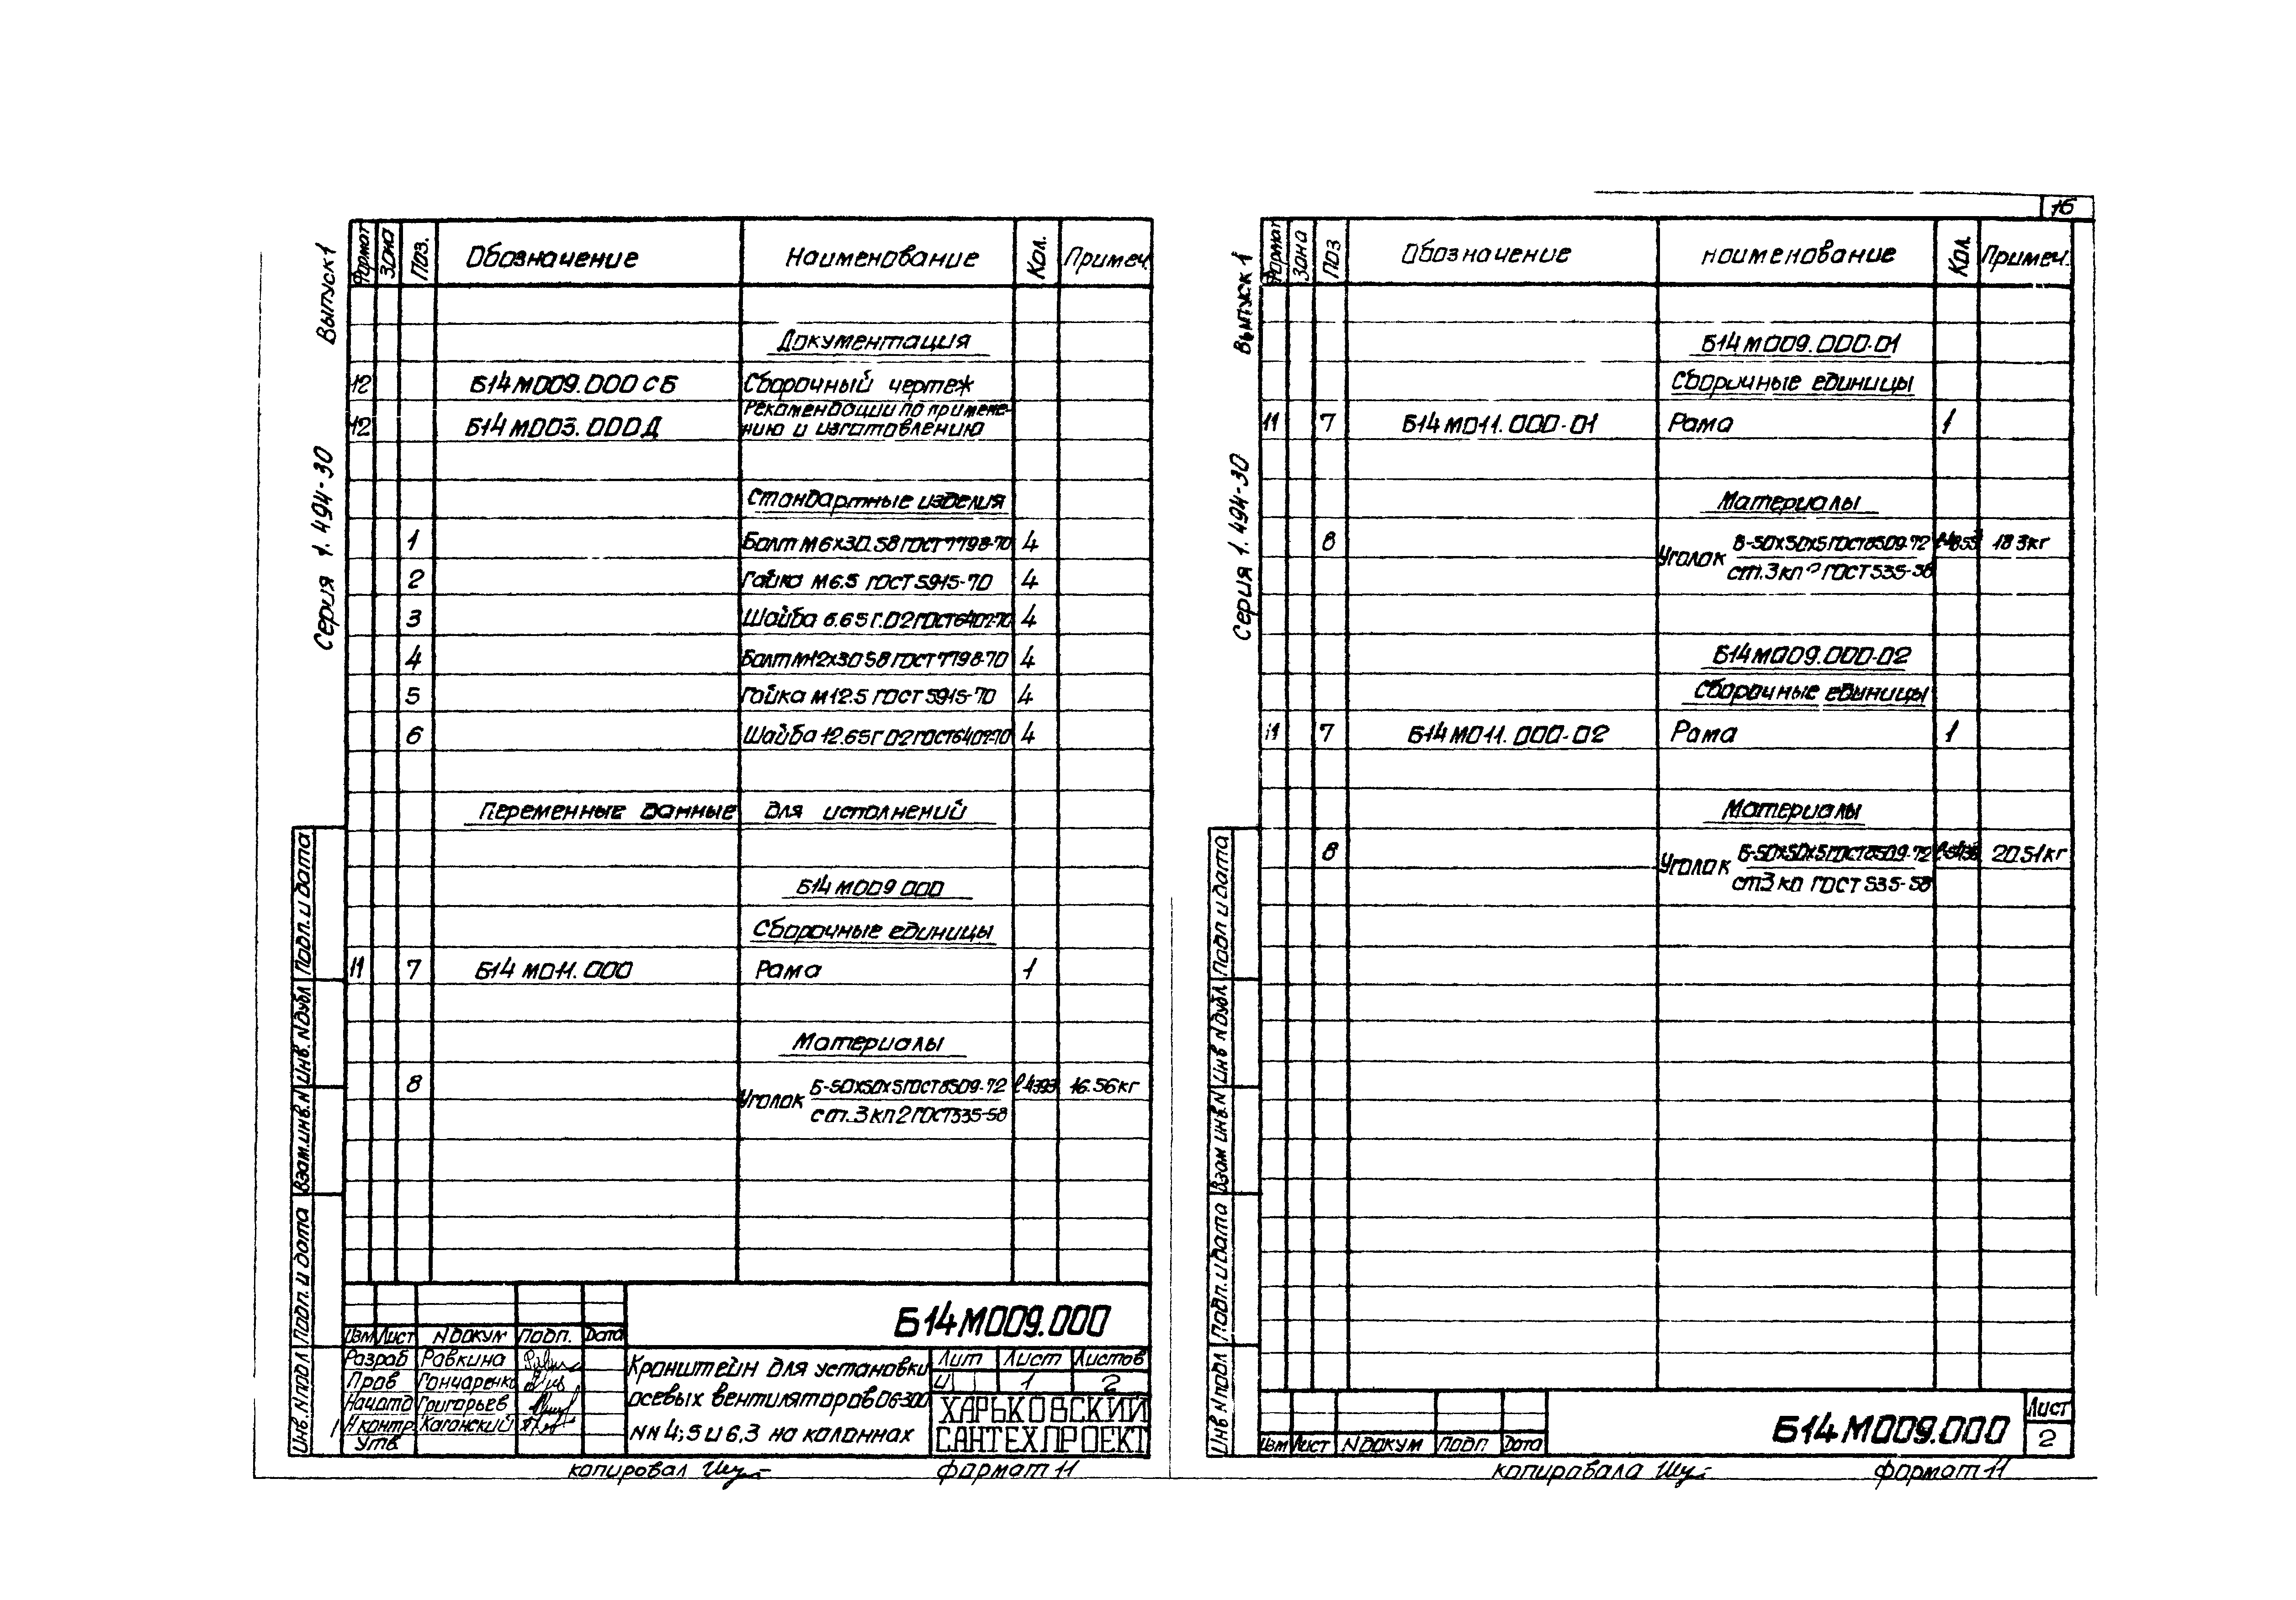 16
Серия 1.494-30 Выпуск 1
Формат Зона Поз. Обозначение Наименование Кол. Примеч.
Документация
12 Б14М009.000 СБ Сборочный чертеж
12 Б14М003.000Д Рекомендации по примене-
нию и изготовлению
Стандартные изделия
1 Болт М6х30.58 ГОСТ 7798-70 4
2 Гайка М6.5 ГОСТ 5915-70 4
3 Шайба 6.65Г.02 ГОСТ 6402-70 4
4 Болт М12х30 58 ГОСТ 7798-70 4
5 Гайка М12.5 ГОСТ 5915-70 4
6 Шайба 12.65Г 02 ГОСТ 6402-70 4
Переменные данные для исполнений
Б14М009 000
Сборочные единицы
11 7 Б14М011.000 Рама 1
Материалы
8 Уголок Б-50х50х5 ГОСТ 8509-72 ℓ4393 16.56кг
ст.3кп2 ГОСТ 535-58
Подп. и дата
Инв. N дубл
Взам.инв.N
Подп. и дата
Инв. N подл
Б14М009.000
Изм Лист N докум Подп. Дата
Разраб Равкина
Пров Гончаренко
Григорьев
Н.контр. Каганский
Утв.
Кронштейн для установки
осевых вентиляторов 06-300
NN 4; 5 и 6,3 на колоннах
Лит Лист Листов
И 1 2
ХАРЬКОВСКИЙ
САНТЕХПРОЕКТ
копировал формат 11
Серия 1.494-30 Выпуск 1
Формат Зона Поз Обозначение наименование Кол. Примеч.
Б14М009.000-01
Сборочные единицы
11 7 Б14М011.000-01 Рама 1
Материалы
8 Уголок Б-50х50х5 ГОСТ 8509-72 18 3кг
ст.3кп ГОСТ 535-58
Б14М009.000-02
Сборочные единицы
11 7 Б14М011.000-02 Рама 1
Материалы
8 Уголок Б-50х50х5 ГОСТ 8509-72 20.51кг
ст3кп ГОСТ 535-58
Подп и дата
Инв N дубл
Взам инв.N
Подп. и дата
Инв N подл
Изм Лист N докум Подп Дата
Б14М009.000
Лист
2
копировала формат 11